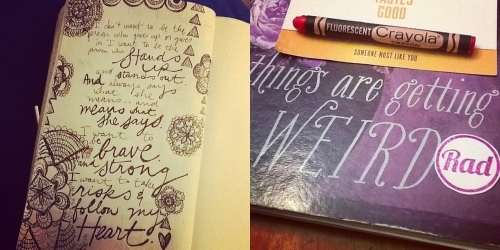 I don't want to be the
person who gives up or gives
in I want to be the
person who
Stands
up
and stands out.
And always says
what she
means... and
means what
she says.
I want to
be brave.
and strong
I want to take
risks &
follow my
Heart.
TASTES
GOOD
FLUORESCENT Crayola
SOMEONE MOST LIKE YOU
things are getting
WEIRD
Rad